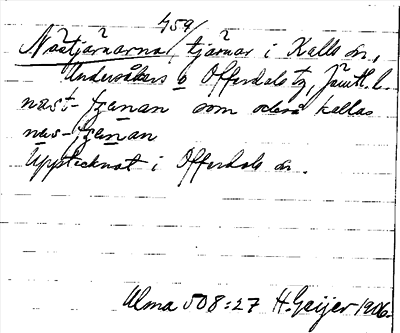 459/
Nästjärnarna, tjärnar i Kalls sn.,
Undersåkers o Offerdals tg, Jämtl. l.
näst-tjänan som också kallas
näs-tjänan
Upptecknat i Offerdals sn.
Alma 508:27 H. Geijer 1906.